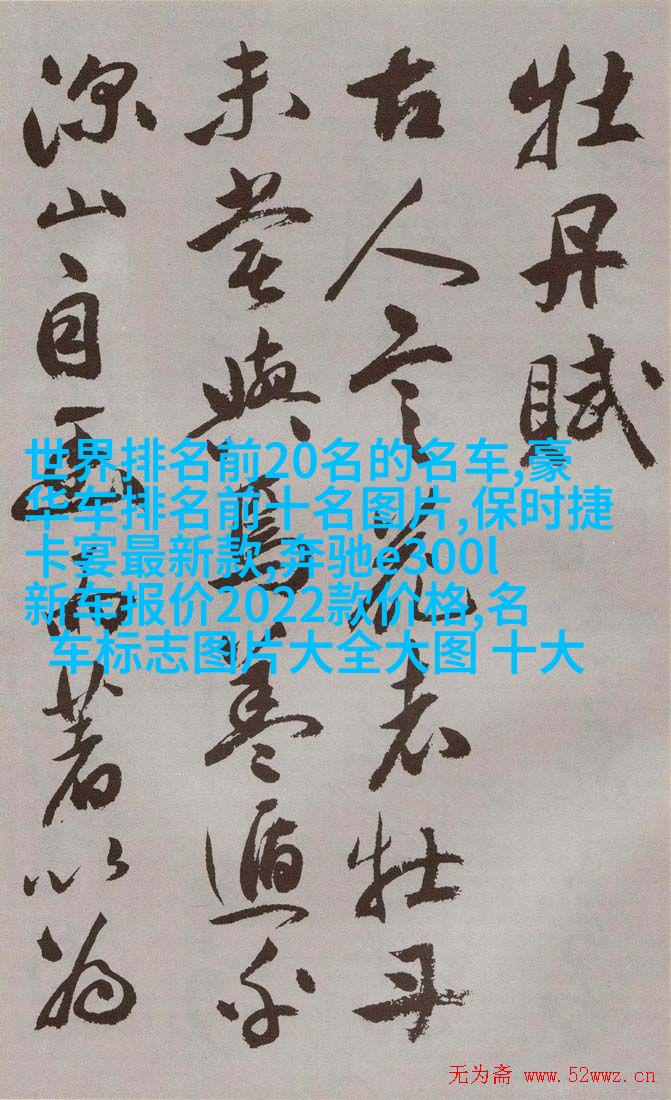 牡丹賦
古人言花者牡丹
未嘗與焉蓋遁於
深山自幽而著以為
世界排名前20名的名车,豪
华车排名前十名图片,保时捷
卡宴最新款,奔驰e300l
新车报价2022款价格,名
车标志图片大全大图 十大
无为斋 www.52wwz.cn